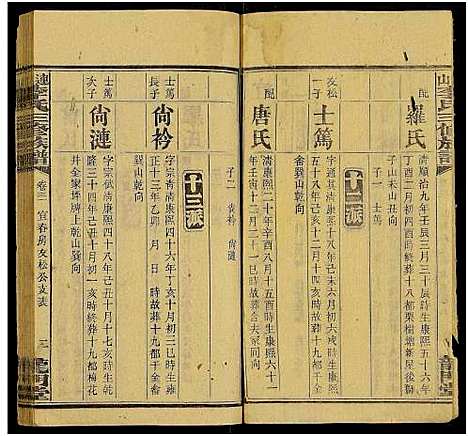 配
羅氏
清順治九年壬辰三月三十辰時生康熙五十六年
丁酉二月初八亥時終葬十六都栗樹塘新屋
子山未山丑向
子一 士篤
十二派
友松
一子
士篤
字通
清康熙
五十八年己亥十二月十四亥時故葬十九都干
金畬巽山乾向
配
唐氏
清康熙二十年辛酉八月十五酉時生康熙六十一
年壬寅十二月二十一巳時故葬合夫冢同向
子二 尚衿 尚漣
十三派
士篤
長子
尚衿
字宗
清康熙四十六年丁亥十月初三巳時生雍
正十三年乙卯 月 日 時故葬十九都干金畬
巽山乾向
士篤
次子
尚漣
字宗
清康熙四十八年己丑十月十七亥時生乾
隆三十四年己丑十月初一亥時終葬十九都梅花
井金家坪牌上乾山巽向
李氏三修族譜
卷三 宜春房友松公支表
三
龍門堂